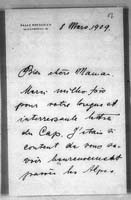 1 Mars, 1909.
Bien chère Maman.
Merci mille fois
pour votre longue et
interessante lettre
du Cap. J'étais si
content de vous sa-
voir heureusement
passée les Alpes